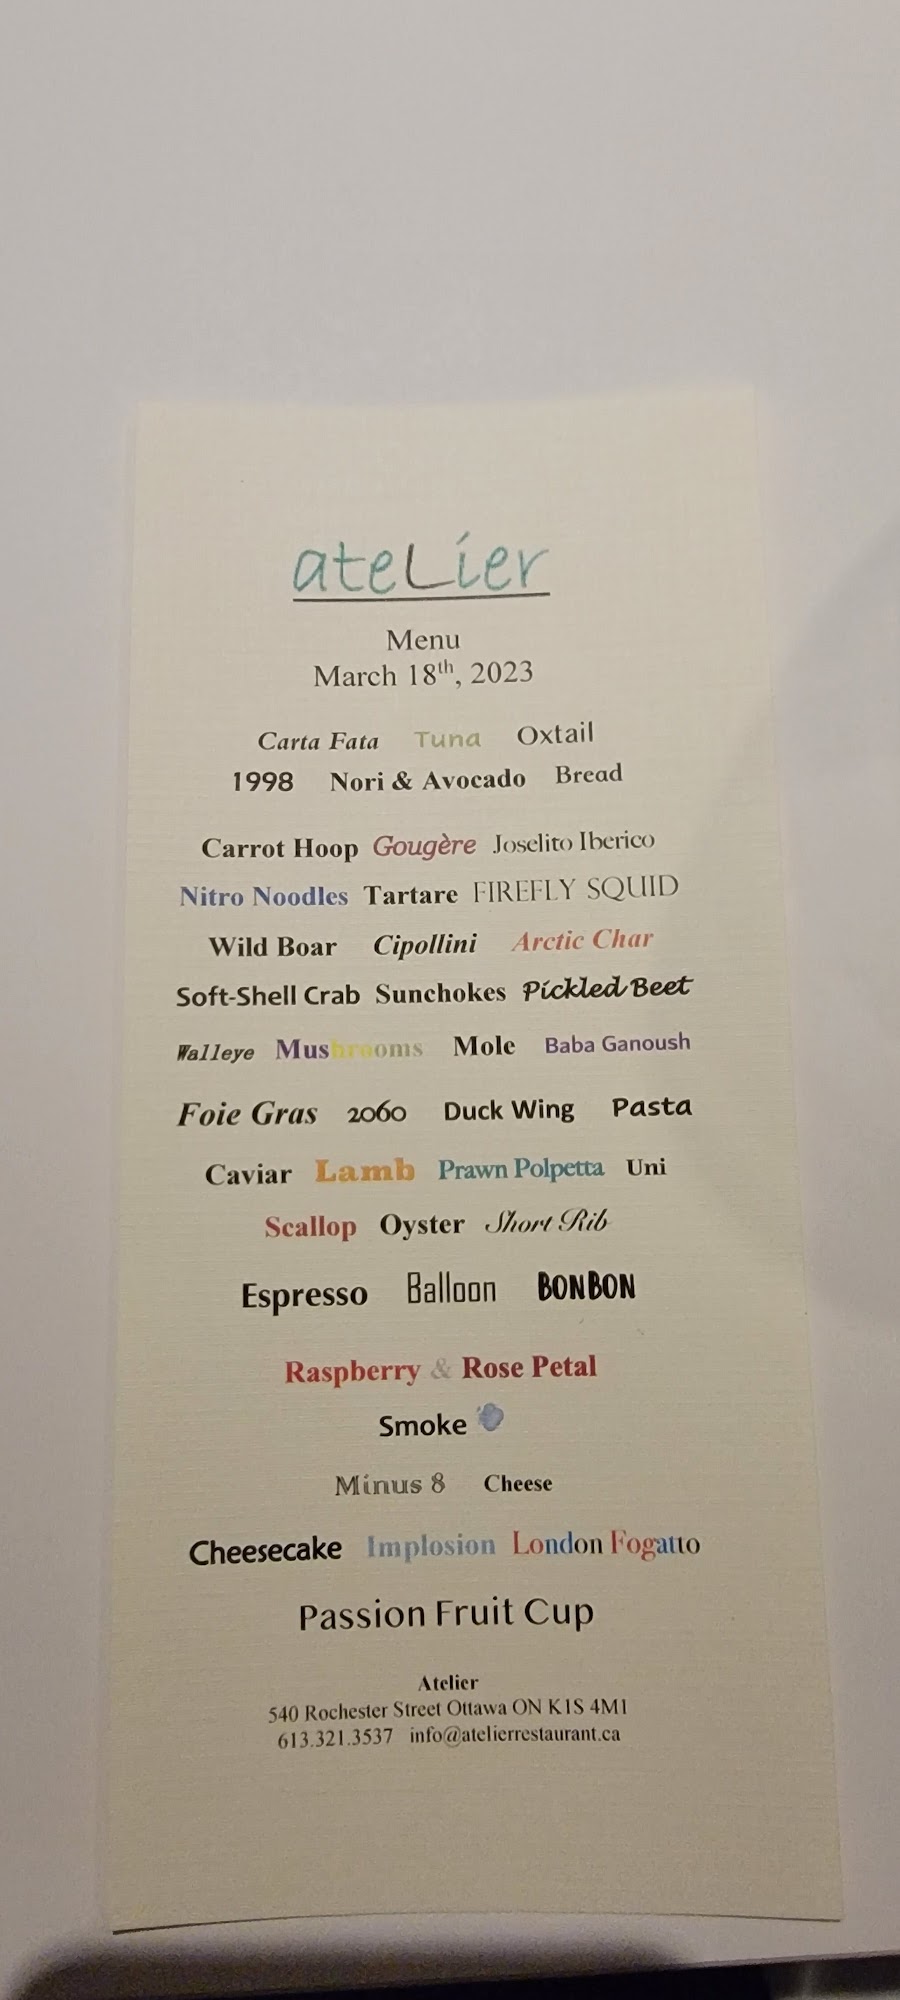 ateLier
Menu
March 18th, 2023
Carta Fata Tuna Oxtail
1998 Nori & Avocado Bread
Carrot Hoop Gougère Joselito Iberico
Nitro Noodles Tartare FIREFLY SQUID
Wild Boar Cipollini Arctic Char
Soft-Shell Crab Sunchokes Pickled Beet
Walleye Mushrooms Mole Baba Ganoush
Foie Gras 2060 Duck Wing Pasta
Caviar Lamb Prawn Polpetta Uni
Scallop Oyster Short Rib
Espresso Balloon BONBON
Raspberry & Rose Petal
Smoke
Minus 8 Cheese
Cheesecake Implosion London Fogatto
Passion Fruit Cup
Atelier
540 Rochester Street Ottawa ON K1S 4M1
613.321.3537 info@atelierrestaurant.ca